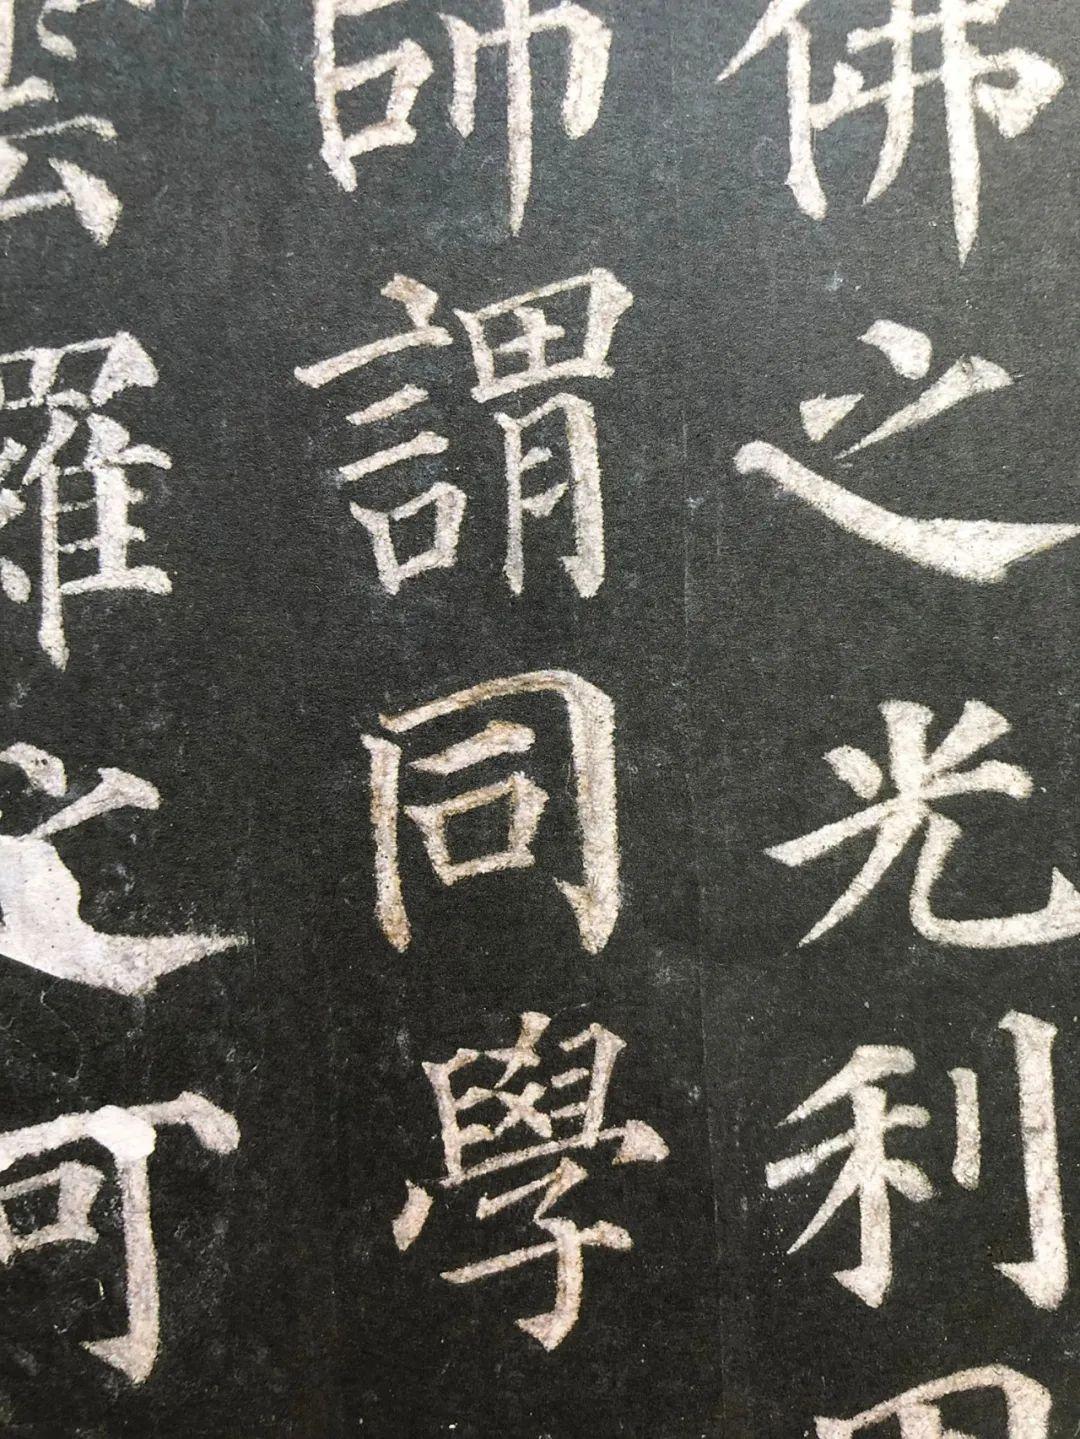 佛之光利
師謂同學
羅之可